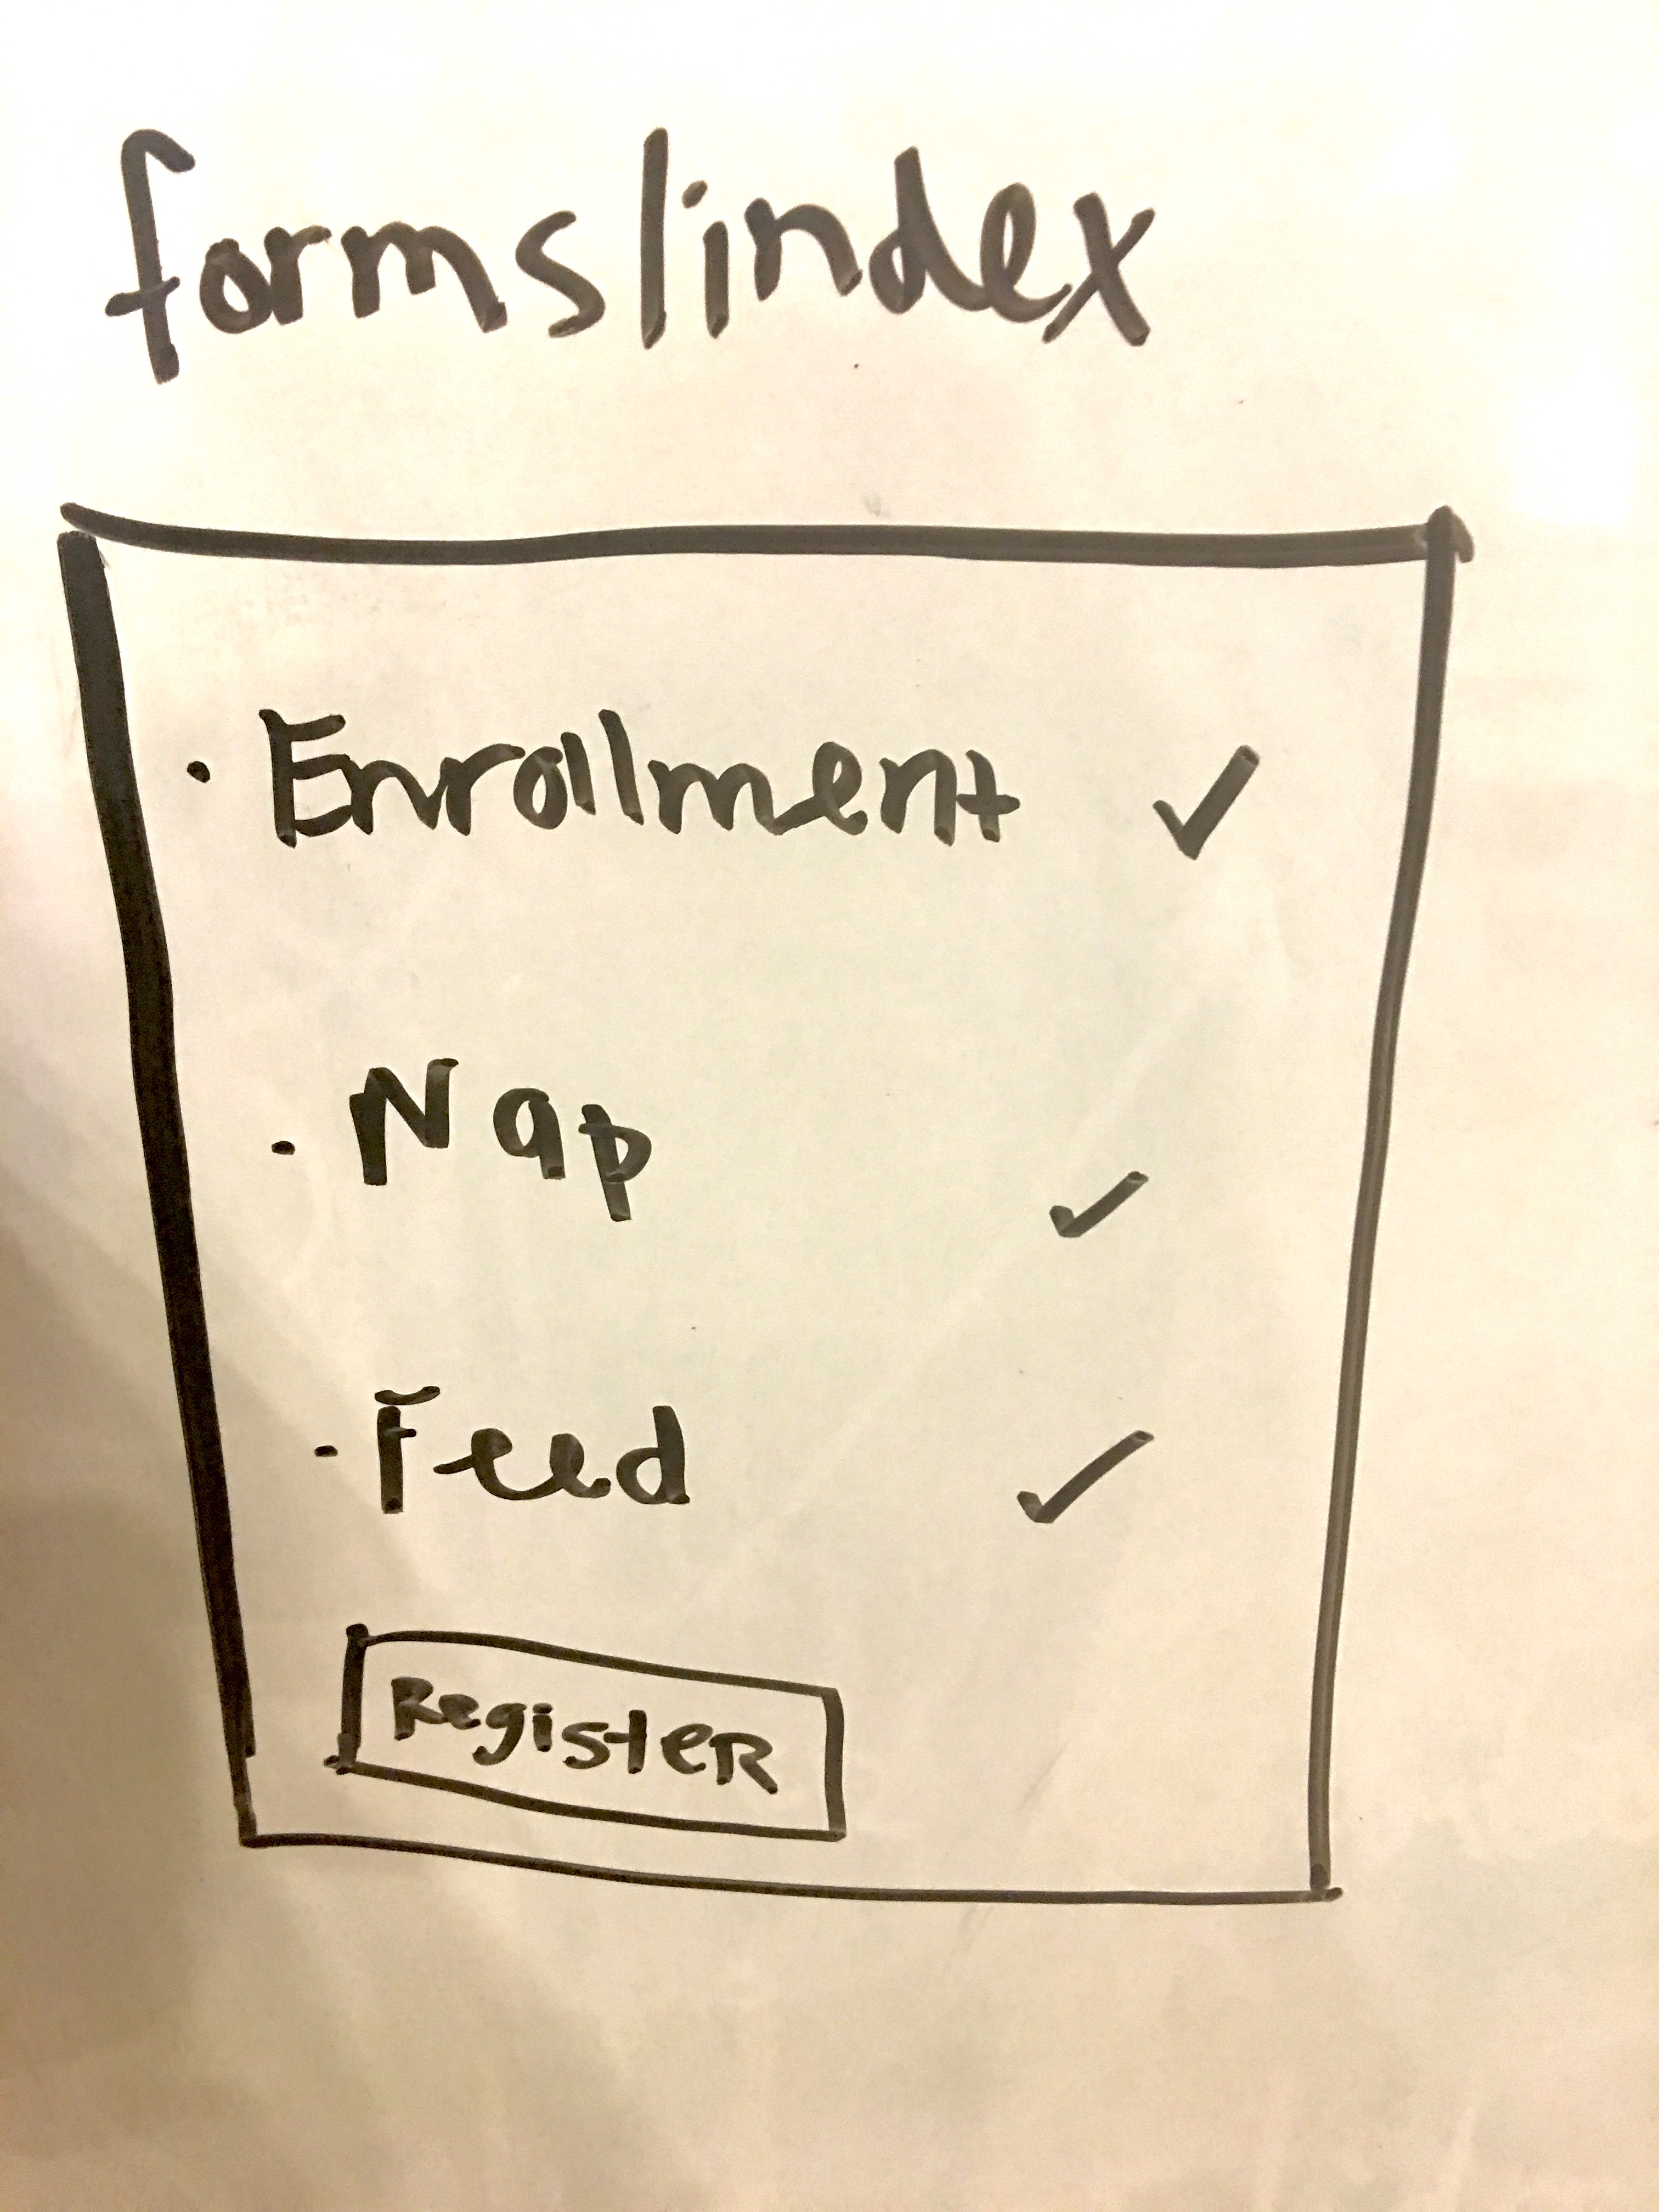 forms/index
· Enrollment ✓
· Nap ✓
· Feed ✓
Register